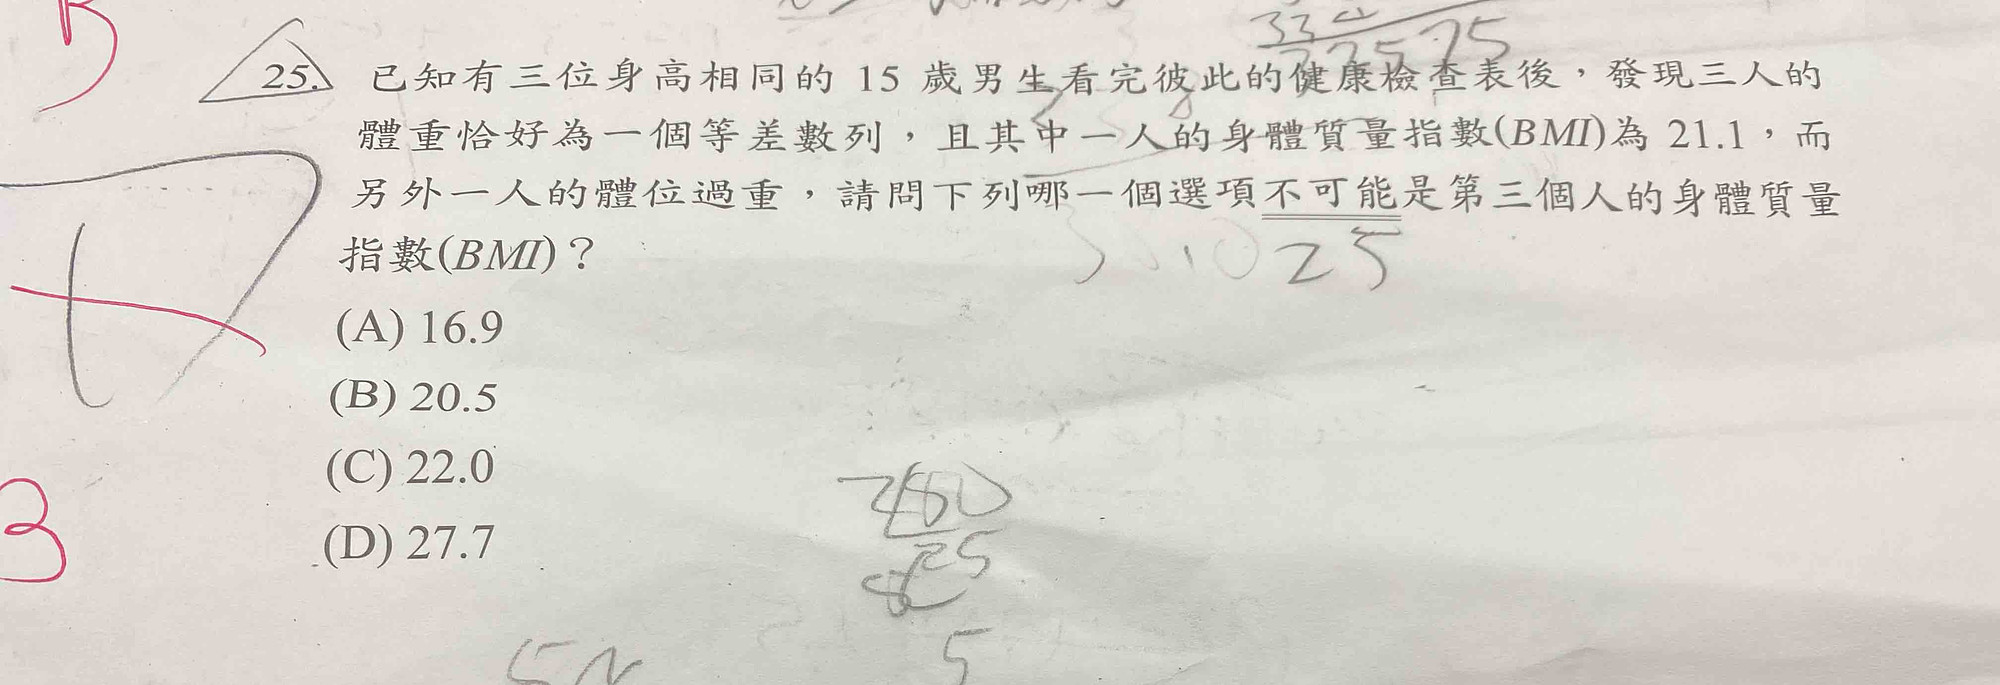 334
77575
25. 已知有三位身高相同的 15 歲男生看完彼此的健康檢查表後，發現三人的
體重恰好為一個等差數列，且其中一人的身體質量指數(BMI)為 21.1，而
另外一人的體位過重，請問下列哪一個選項不可能是第三個人的身體質量
指數(BMI)？
25
(A) 16.9
(B) 20.5
(C) 22.0
(D) 27.7
3
25
5